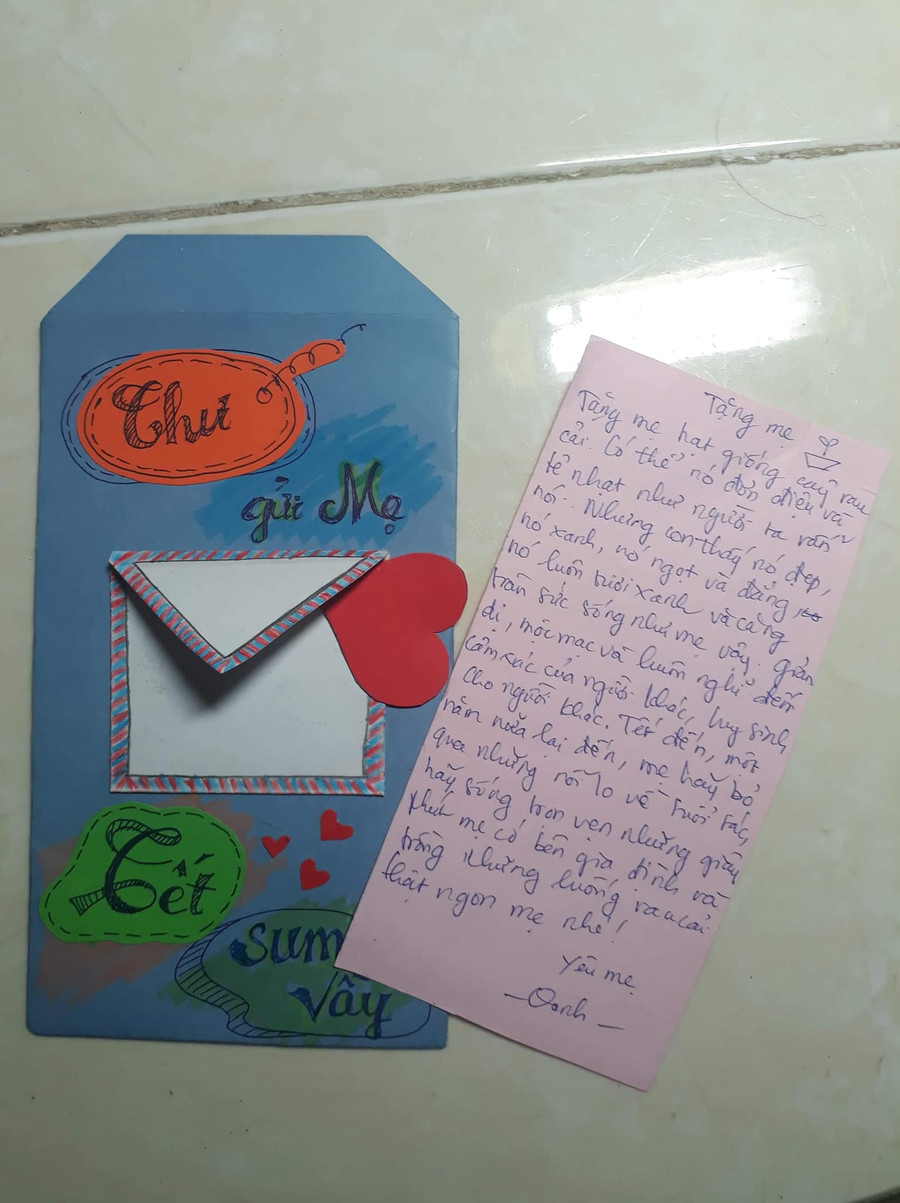 Thư
gửi Mẹ
Tết
sum
vầy
Tặng mẹ
Tặng mẹ hạt giống cây rau
cải. Có thể nó đơn điệu và
tẻ nhạt như người ta vẫn
nói. Nhưng con thấy nó đẹp,
nó xanh, nó ngọt và đắng,
nó luôn tươi xanh và căng
tràn sức sống như mẹ vậy. giản
dị, mộc mạc và luôn nghĩ đến
cảm xúc của người khác, huy sinh
cho người khác. Tết đến, một
năm nữa lại đến, mẹ hãy bỏ
qua những nỗi lo về tuổi tác,
hãy sống trọn vẹn những giây
phút mẹ có bên gia đình và
trồng những luống rau cải
thật ngon mẹ nhé!
Yêu mẹ
- Oanh -